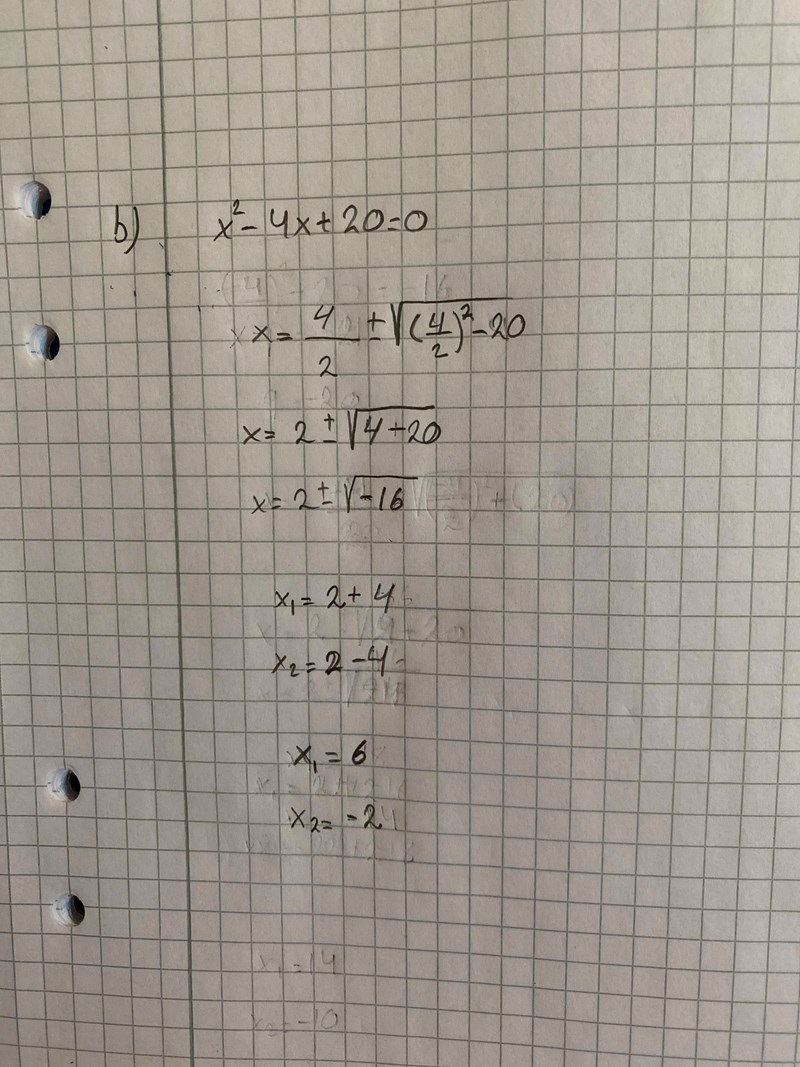 b) x²-4x+20=0
x= 4/2 ± √((4/2)²-20)
x= 2 ± √(4+20)
x= 2 ± √(-16)
x₁= 2+4
x₂= 2-4
x₁ = 6
x₂= -2
x₁ =14
x₂= -10